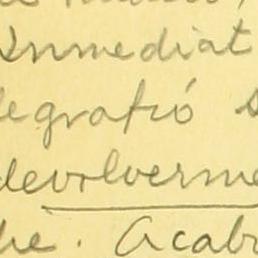 Inmediat
legrafió
devolverme
he. Acab